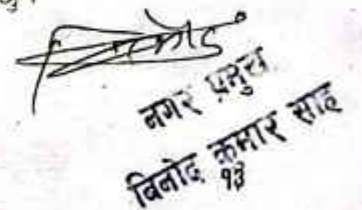 नगर प्रमुख
विनोद कुमार साह
१३